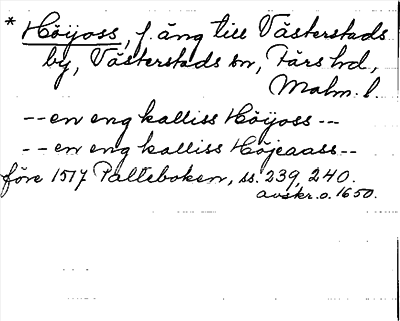 * Höijoss, f. äng till Västerstads
by, Västerstads sn, Färs hd,
Malm. l.
-- en eng kalliss Höijoss ---
-- en eng kalliss Höjeaass --
före 1517 Palteboken, ss. 239, 240.
avskr. o. 1650.